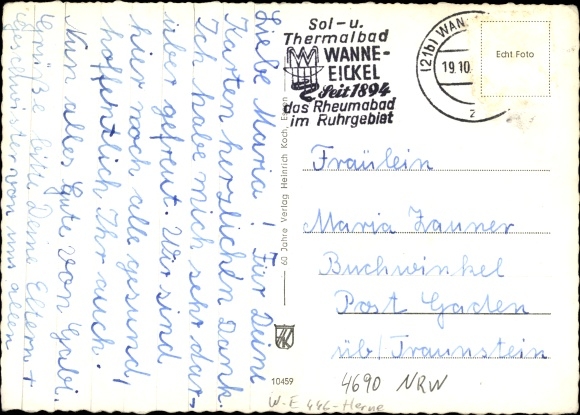 Liebe Maria! Für Deine
Karten herzlichen Dank.
Ich habe mich sehr dar-
über gefreut. Wir sind
hier noch alle gesund,
hoffentlich Ihr auch.
Nun alles Gute von Gabi.
Grüße bitte Deine Eltern +
Geschwister von uns allen
Sol- u.
Thermalbad
WANNE-
EICKEL
Seit 1894
das Rheumabad
im Ruhrgebiet
(21b) WAN
19.10.
z
Echt Foto
60 Jahre Verlag Heinrich Koch, Essen
10459
Fräulein
Maria Zauner
Buchwinkel
Post Gaden
üb/Traunstein
4690 NRW
W-E 446-Herne